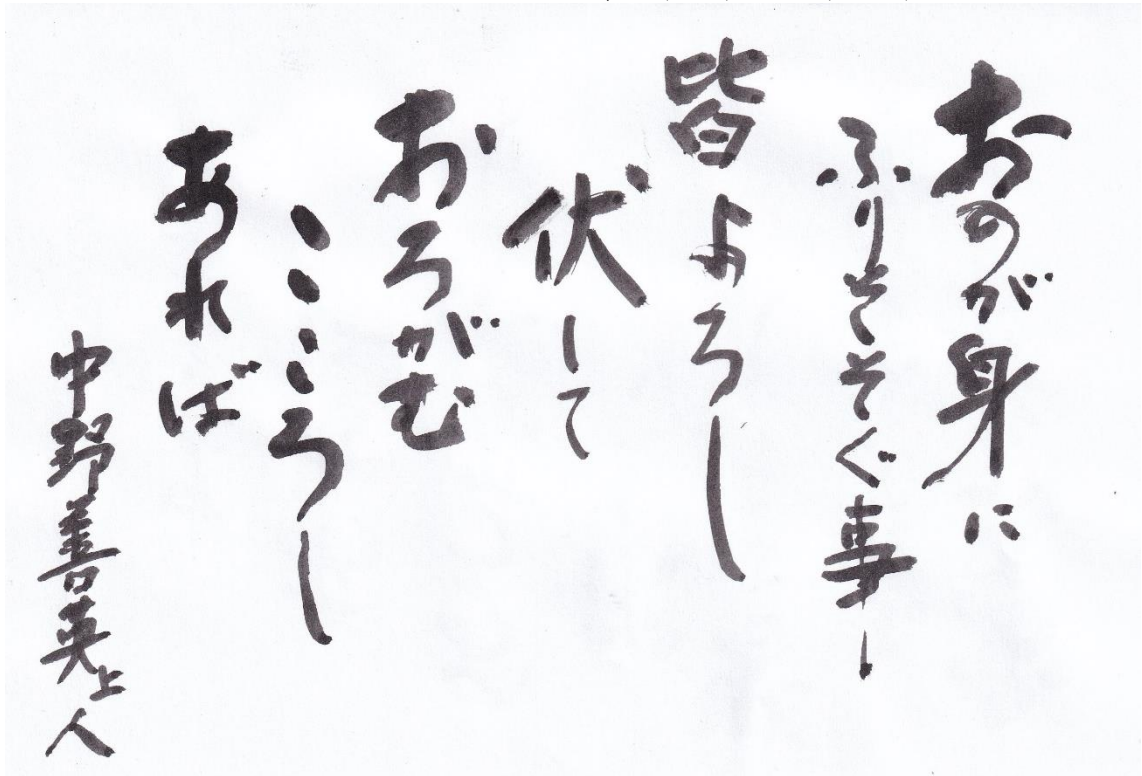 おのが身に
ふりそそぐ事ー
皆よろし
伏して
おろがむ
こころし
あれば
中野善英上人